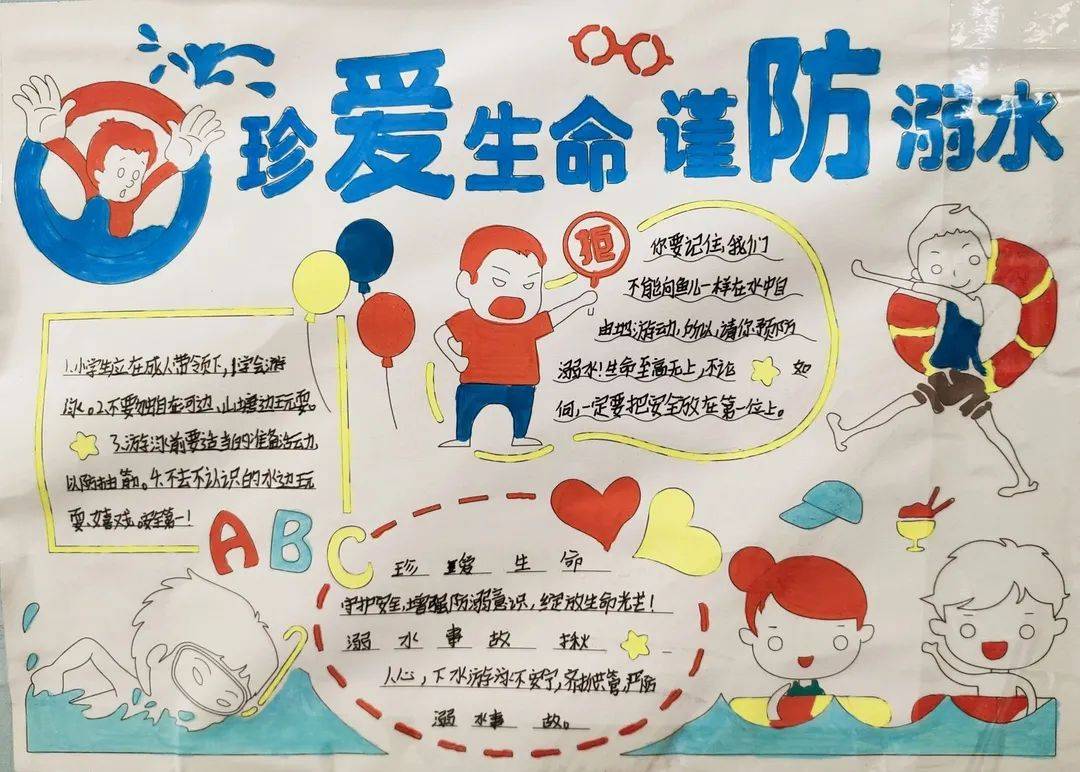 珍爱生命 谨防溺水
拒
1.小学生应在成人带领下,学会游
泳。2.不要独自在河边、山塘边玩耍。
3.游泳前要适当的准备活动
以防抽筋。4.不去不认识的水边玩
耍、嬉戏。安全第一!
你要记住,我们
不能向鱼儿一样在水中自
由地游动,所以,请你预防
溺水!生命至高无上,不论 如
何,一定要把安全放在第一位上。
A B C
珍 爱 生 命
守护安全,增强防溺意识,绽放生命光芒!
溺 水 事 故 揪
人心,下水游泳不安宁,齐抓共管严防
溺 水事 故。